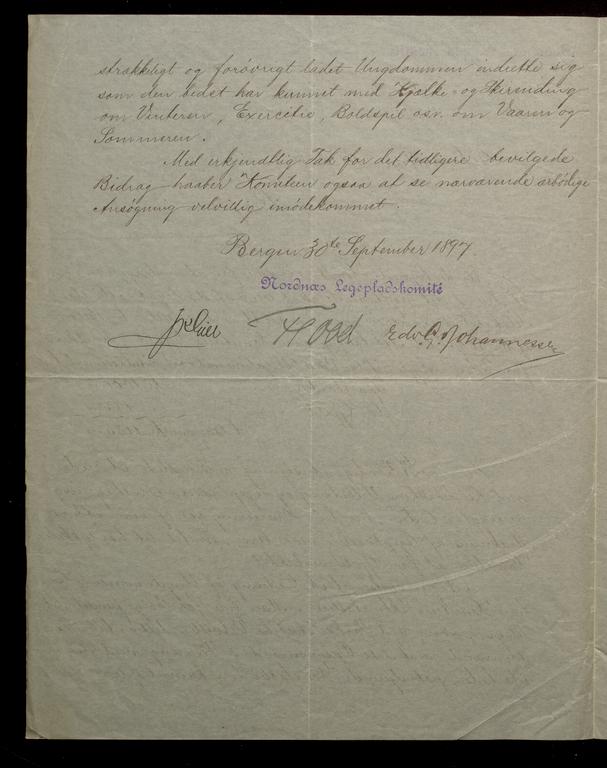 strækkeligt og forøvrigt ladet Ungdommen indrette sig
som den bedst har kunnet med Kjælke- og Skirending
om Vinteren, Exercitie, Boldspil osv. om Vaaren og
Sommeren.
Med erkjendtlig Tak for det tidligere bevilgede
Bidrag haaber Komiteen ogsaa at se nærværende ærbødige
Ansøgning velvillig imødekommet.
Bergen 30te September 1897
Nordnæs Legepladskomité
Edv. G. Johannessen